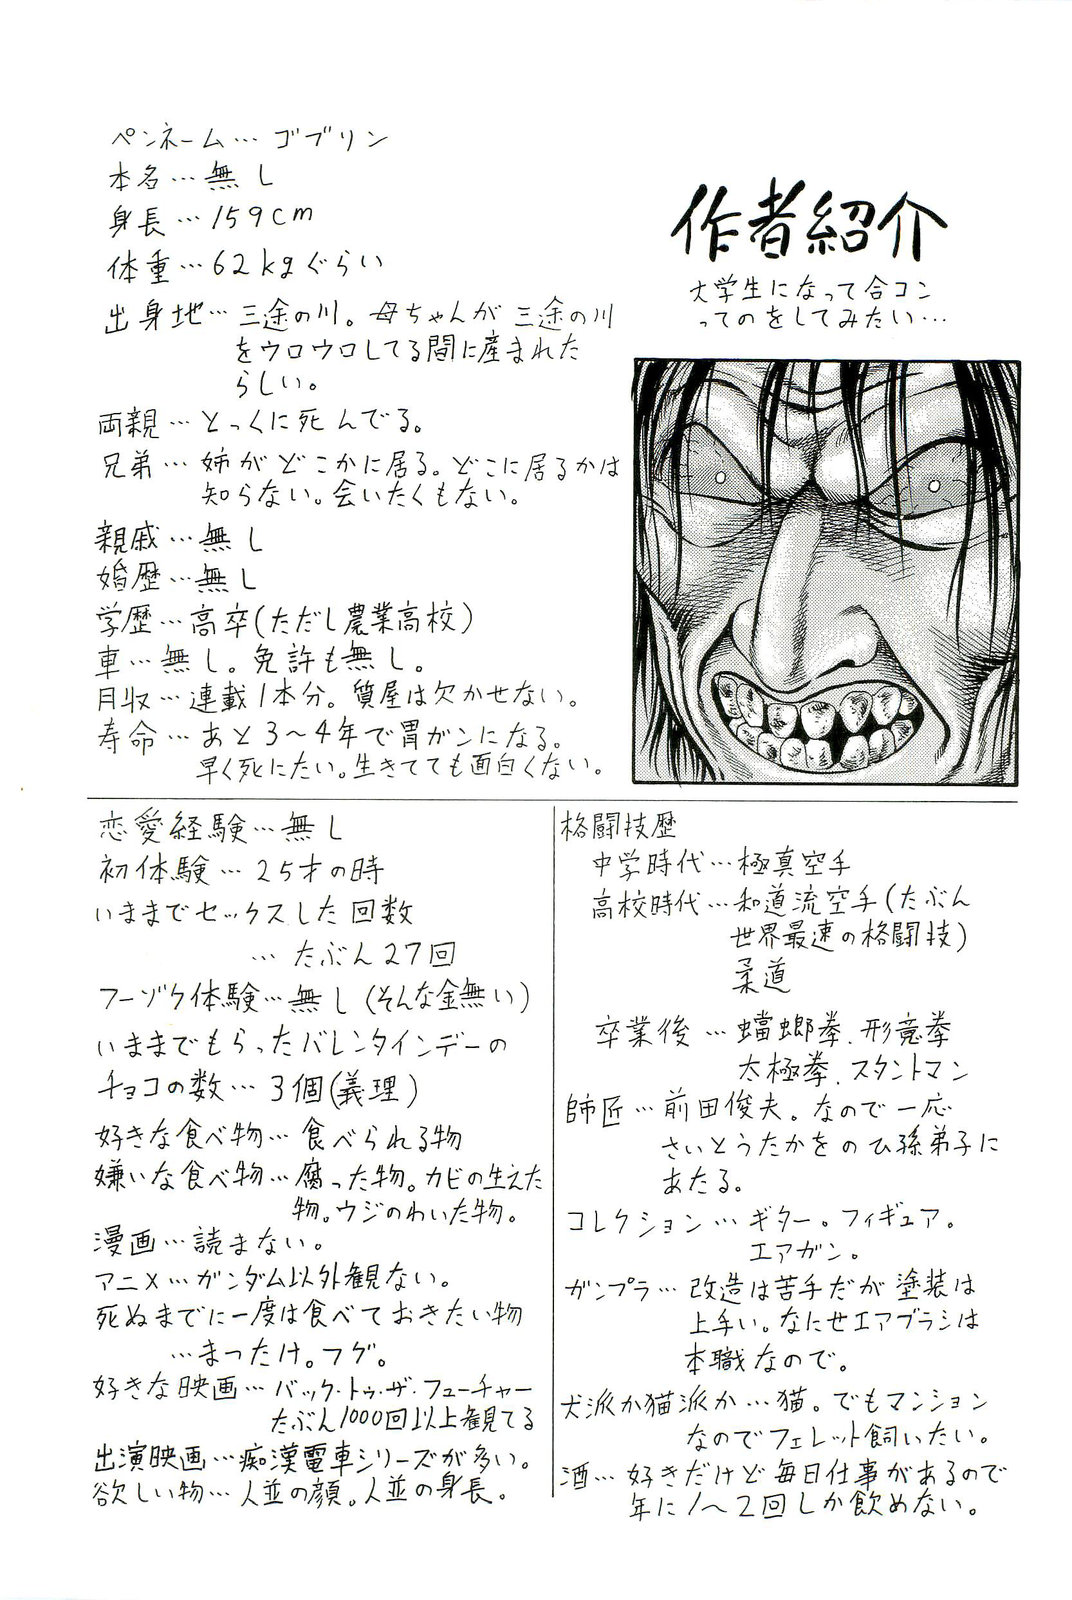 作者紹介
大学生になって合コン
ってのをしてみたい…
ペンネーム…ゴブリン
本名…無し
身長…159cm
体重…62kgぐらい
出身地…三途の川。母ちゃんが三途の川
をウロウロしてる間に産まれた
らしい。
両親…とっくに死んでる。
兄弟…姉がどこかに居る。どこに居るかは
知らない。会いたくもない。
親戚…無し
婚歴…無し
学歴…高卒(ただし農業高校)
車…無し。免許も無し。
月収…連載1本分。質屋は欠かせない。
寿命…あと3〜4年で胃ガンになる。
早く死にたい。生きてても面白くない。
恋愛経験…無し
初体験…25才の時
いままでセックスした回数
…たぶん27回
フーゾク体験…無し(そんな金無い)
いままでもらったバレンタインデーの
チョコの数…3個(義理)
好きな食べ物…食べられる物
嫌いな食べ物…腐った物。カビの生えた
物。ウジのわいた物。
漫画…読まない。
アニメ…ガンダム以外観ない。
死ぬまでに一度は食べておきたい物
…まつたけ。フグ。
好きな映画…バック・トゥ・ザ・フューチャー
たぶん1000回以上観てる
出演映画…痴漢電車シリーズが多い。
欲しい物…人並の顔。人並の身長。
格闘技歴
中学時代…極真空手
高校時代…和道流空手(たぶん
世界最速の格闘技)
柔道
卒業後…蟷螂拳.形意拳
太極拳.スタントマン
師匠…前田俊夫。なので一応
さいとうたかをのひ孫弟子に
あたる。
コレクション…ギター。フィギュア。
エアガン。
ガンプラ…改造は苦手だが塗装は
上手い。なにせエアブラシは
本職なので。
犬派か猫派か…猫。でもマンション
なのでフェレット飼いたい。
酒…好きだけど毎日仕事があるので
年に1〜2回しか飲めない。